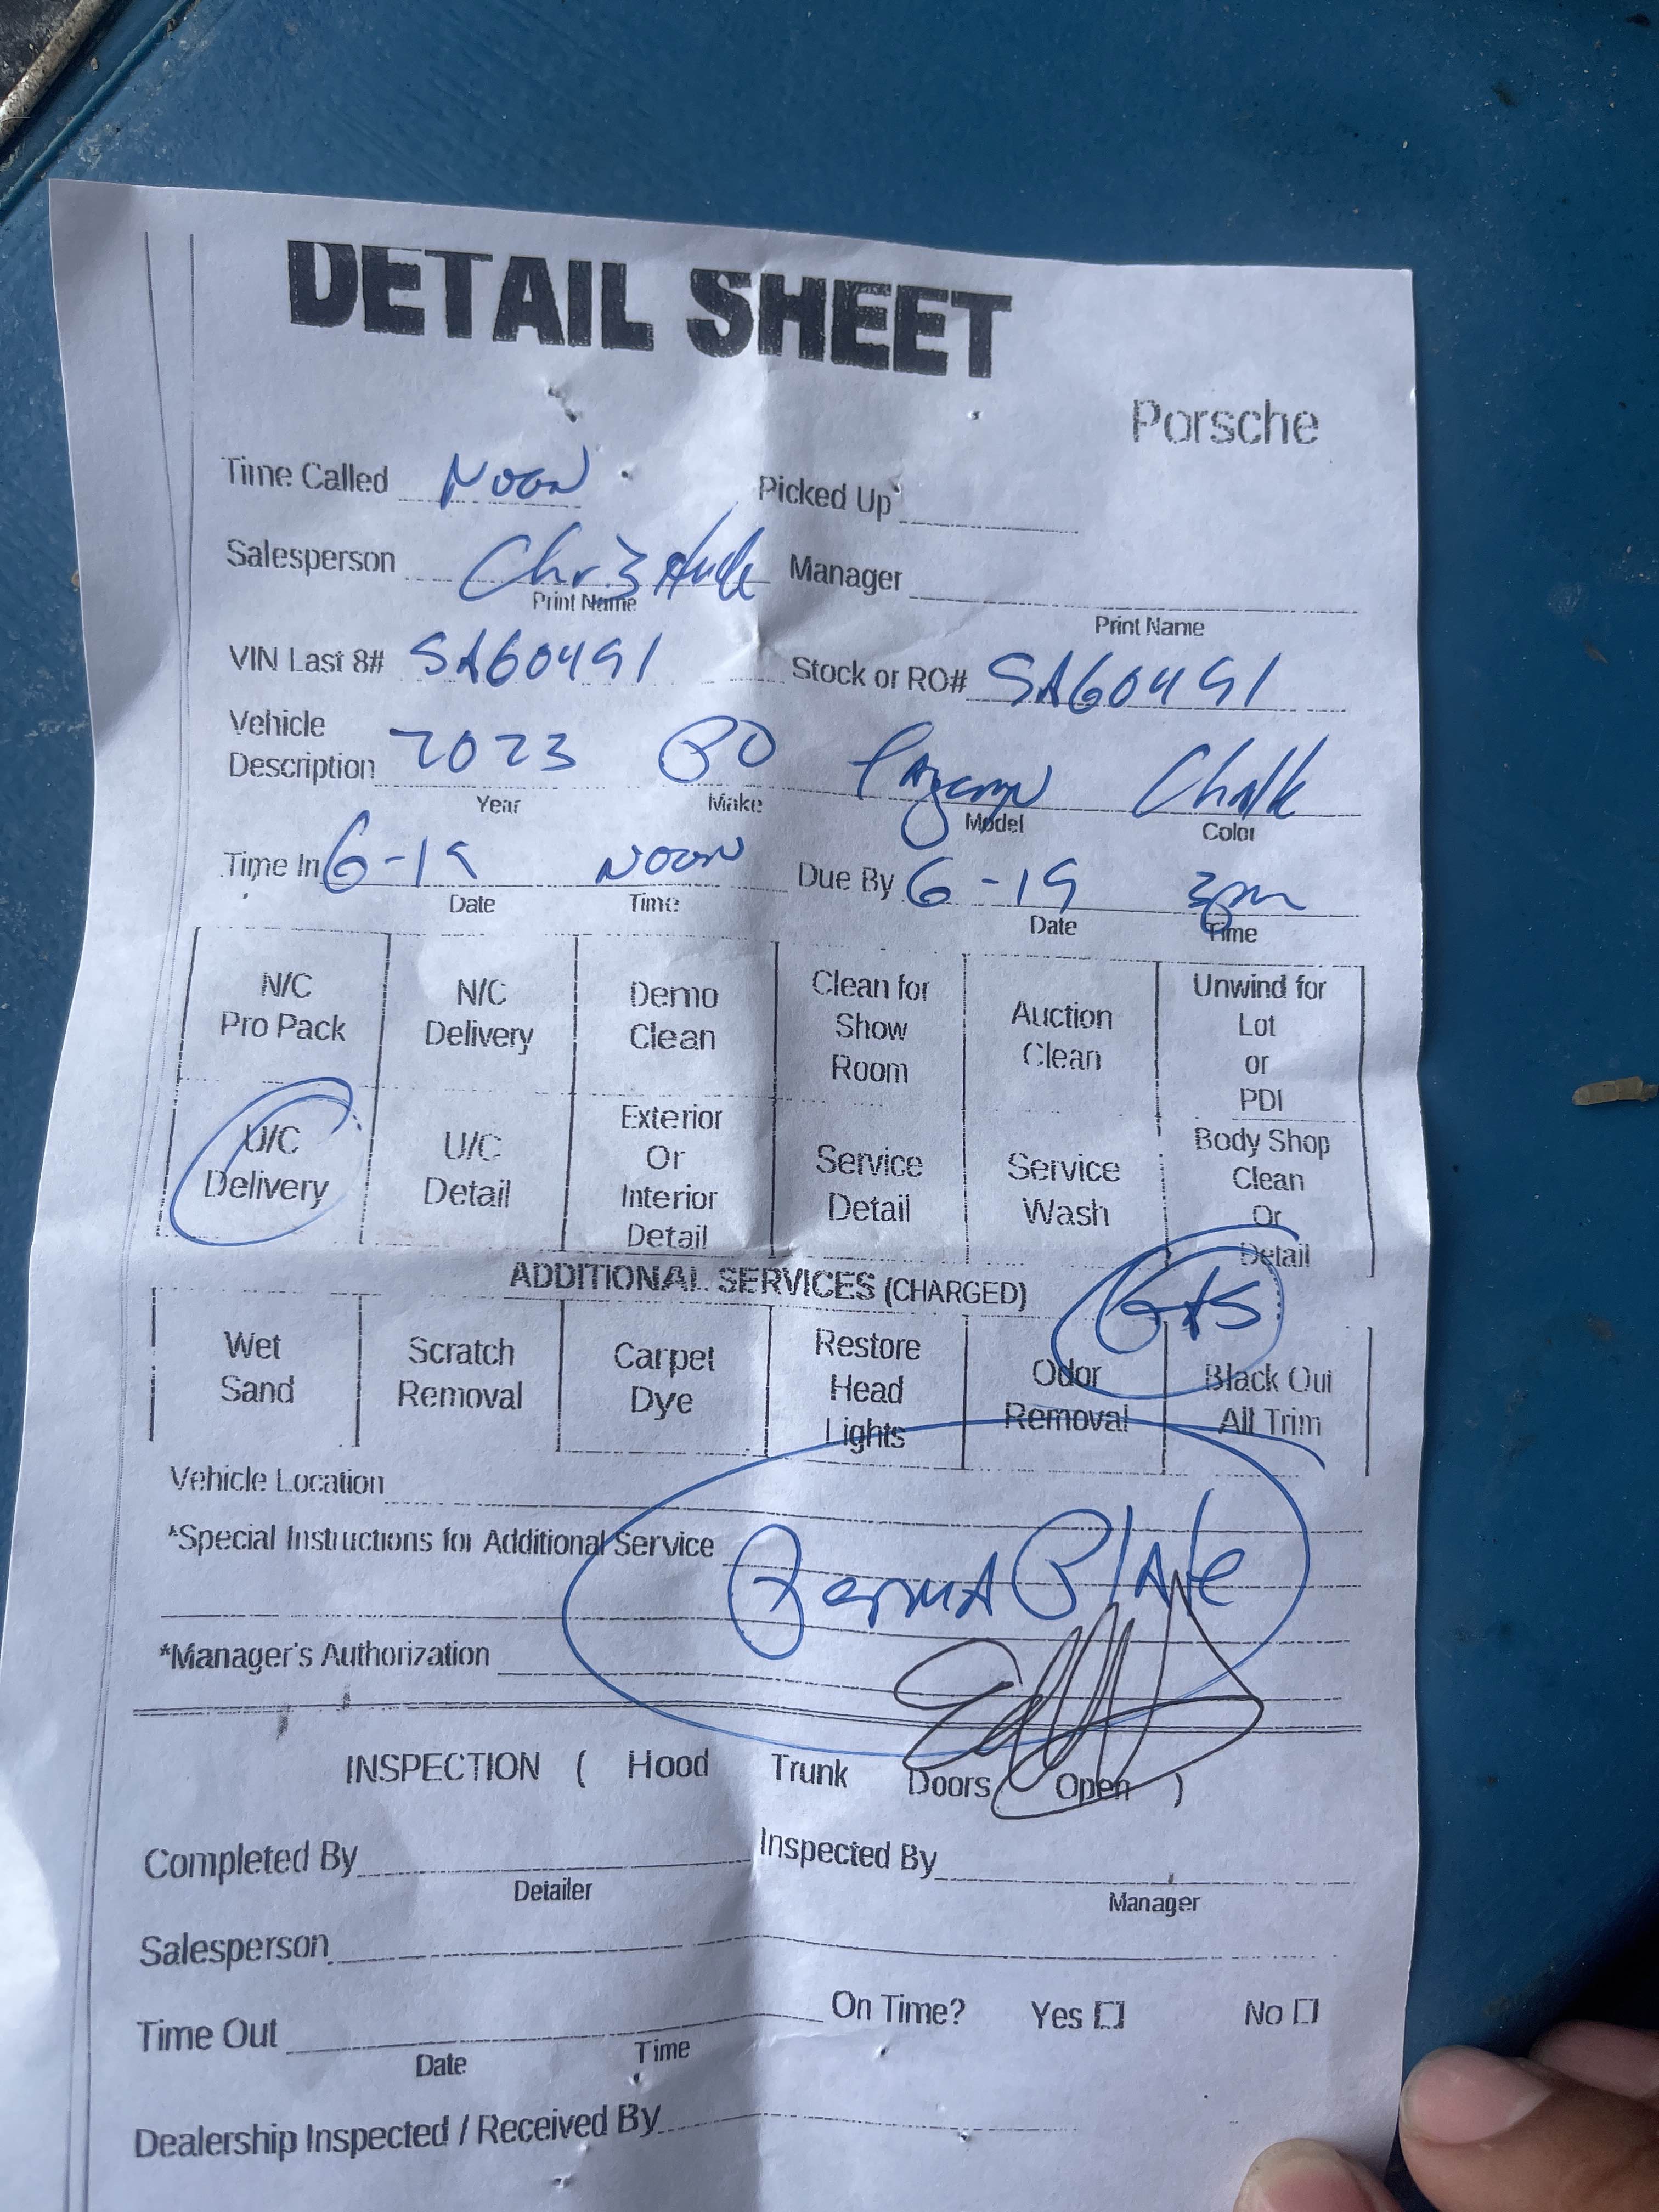 DETAIL SHEET
Porsche
Time Called Noon Picked Up
Salesperson Chris Manager
Print Name Print Name
VIN Last 8# SA60491 Stock or RO# SA60491
Vehicle
Description 2023 PO Chalk
Year Make Model Color
Time In 6-19 Noon Due By 6-19 3pm
Date Time Date Time
N/C Pro Pack N/C Delivery Demo Clean Clean for Show Room Auction Clean Unwind for Lot or PDI
U/C Delivery U/C Detail Exterior Or Interior Detail Service Detail Service Wash Body Shop Clean Or Detail
ADDITIONAL SERVICES (CHARGED) GAS
Wet Sand Scratch Removal Carpet Dye Restore Head Lights Odor Removal Black Out All Trim
Vehicle Location
*Special Instructions for Additional Service PermA PlAte
*Manager's Authorization
INSPECTION ( Hood Trunk Doors Open )
Completed By Inspected By
Detailer Manager
Salesperson
Time Out On Time? Yes No
Date Time
Dealership Inspected / Received By